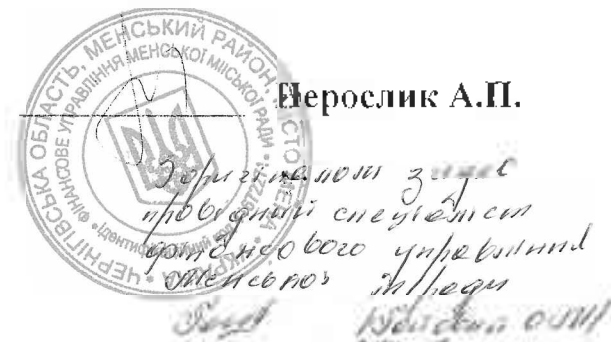 ЧЕРНІГІВСЬКА ОБЛАСТЬ, МЕНСЬКИЙ РАЙОН, МІСТО МЕНА * УКРАЇНА *
ФІНАНСОВЕ УПРАВЛІННЯ МЕНСЬКОЇ МІСЬКОЇ РАДИ * Ідентифікаційний код
Нерослик А.П.
З оригіналом
провідний спеціаліст
фінансового управління
Менської м/ради